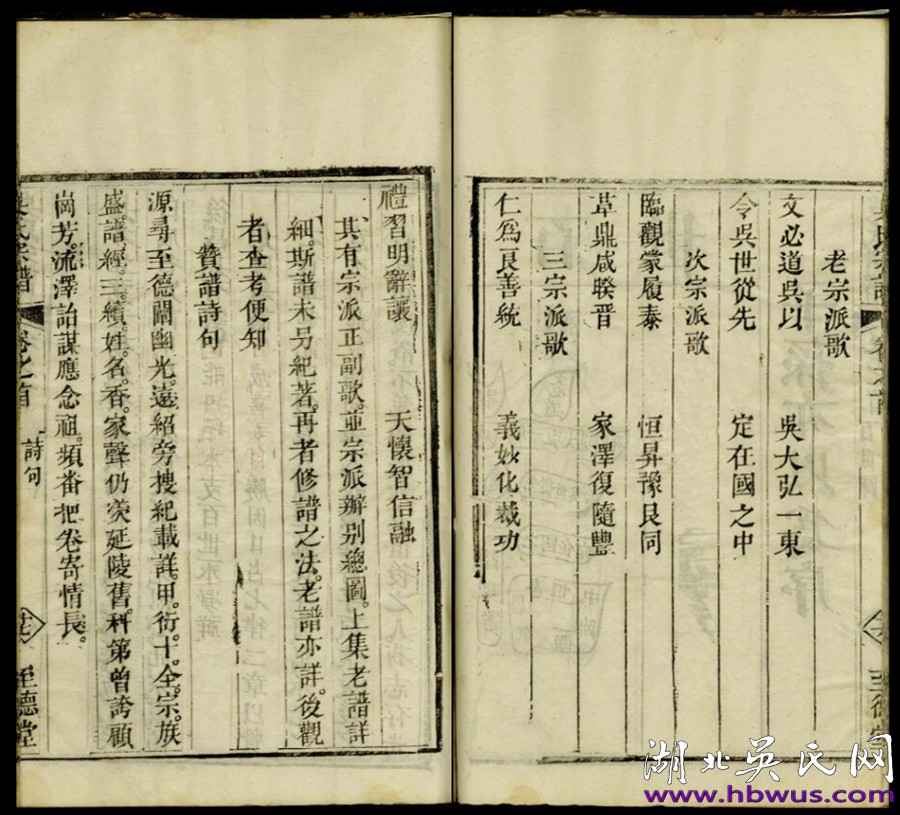 老宗派歌
文必道吳以 吳大弘一東
令吳世從先 定在國之中
次宗派歌
臨觀蒙履泰 恒昇豫艮同
革鼎咸暌晉 家澤復隨豐
三宗派歌
仁為良善統 義妙化裁功
禮習明辭讓 天懷智信融
其有宗派正副歌。並宗派辦别總圖。上集老譜詳
細。斯譜未另紀著。再者修譜之法。老譜亦詳。後觀
者查考便知
贊譜詩句
源尋至德闡幽光。遠紹旁搜紀載詳。甲衍十全宗族
盛。譜經三續姓名香。家聲仍羨延陵舊。科第曾誇顧
崗芳。流澤詒謀應念祖。頻番把卷寄情長。
吳氏宗譜 卷之首 詩句 至德堂
湖北吳氏网
www.hbwus.com